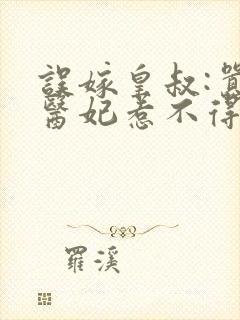 誤嫁皇叔:
醫妃惹不得
羅溪